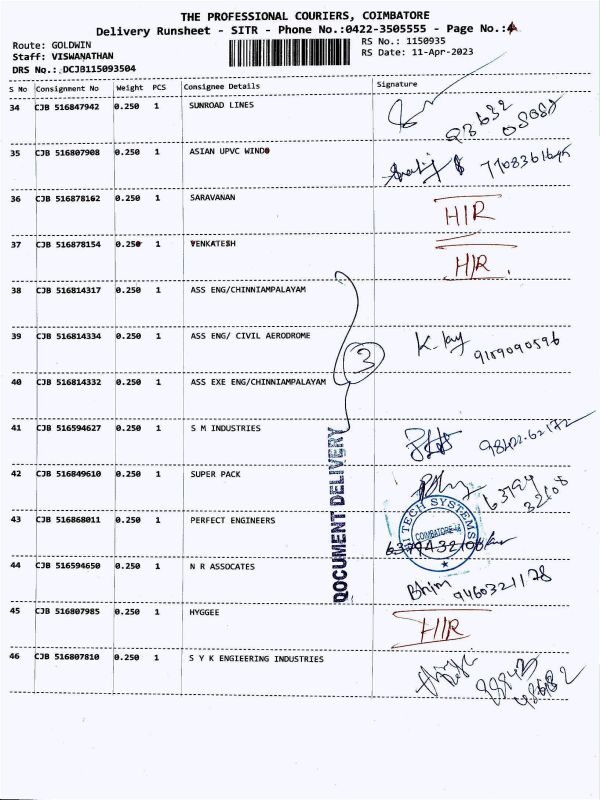 THE PROFESSIONAL COURIERS, COIMBATORE
Delivery Runsheet - SITR - Phone No.:0422-3505555 - Page No.:4
Route: GOLDWIN
RS No.: 1150935
Staff: VISWANATHAN
RS Date: 11-Apr-2023
DRS No.:DCJB115093504
S No Consignment No Weight PCS Consignee Details Signature
34 CJB 516847942 0.250 1 SUNROAD LINES
35 CJB 516807908 0.250 1 ASIAN UPVC WINDO
36 CJB 516878162 0.250 1 SARAVANAN H/R
37 CJB 516878154 0.250 1 VENKATESH H/R
38 CJB 516814317 0.250 1 ASS ENG/CHINNIAMPALAYAM
39 CJB 516814334 0.250 1 ASS ENG/ CIVIL AERODROME 3 9189090596
40 CJB 516814332 0.250 1 ASS EXE ENG/CHINNIAMPALAYAM
41 CJB 516594627 0.250 1 S M INDUSTRIES
42 CJB 516849610 0.250 1 SUPER PACK 63794 32108
43 CJB 516868011 0.250 1 PERFECT ENGINEERS
TECH SYSTEMS
COIMBATORE
44 CJB 516594650 0.250 1 N R ASSOCATES 9460321178
45 CJB 516807985 0.250 1 HYGGEE H/R
46 CJB 516807810 0.250 1 S Y K ENGIEERING INDUSTRIES
DOCUMENT DELIVERY